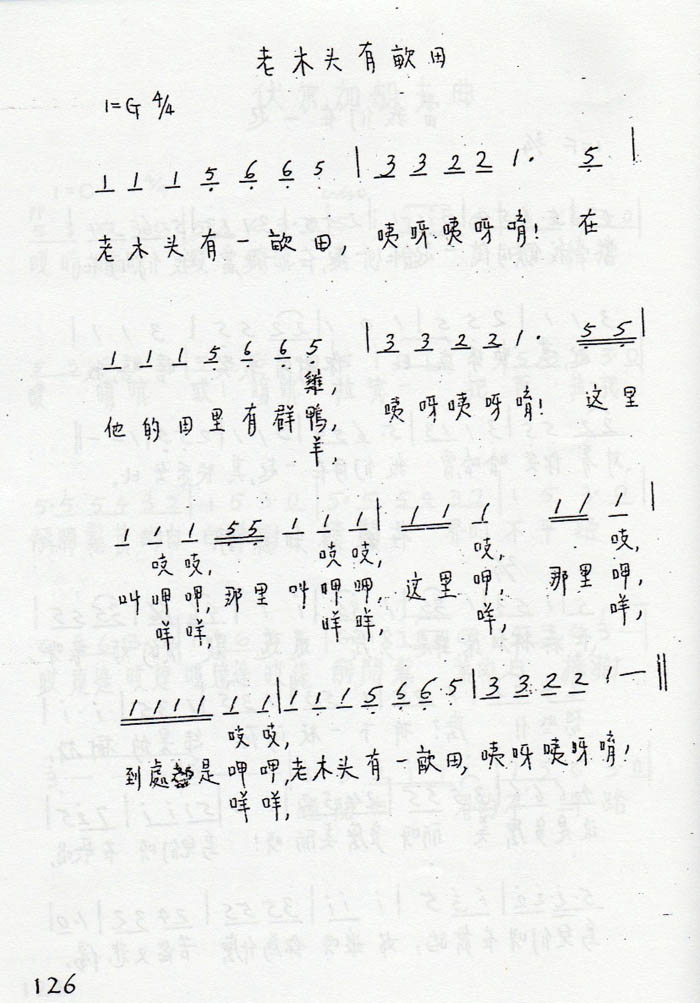 老木头有畝田
1=G 4/4
1 1 1 5 6 6 5 | 3 3 2 2 1· 5 |
老木头有一畝田, 咦呀咦呀唷! 在
1 1 1 5 6 6 5 | 3 3 2 2 1· 5 5 |
雞,
他的田里有群鴨, 咦呀咦呀唷! 这里
羊,
1 1 1 5 5 1 1 1 | 1 1 1 1 1 1 |
吱吱, 吱吱, 吱, 吱,
叫呷呷, 那里叫呷呷, 这里呷, 那里呷,
咩咩, 咩咩, 咩, 咩,
1 1 1 1 1 1 | 1 1 1 5 6 6 5 | 3 3 2 2 1 — ‖
吱吱,
到處是呷呷, 老木头有一畝田, 咦呀咦呀唷!
咩咩,
126